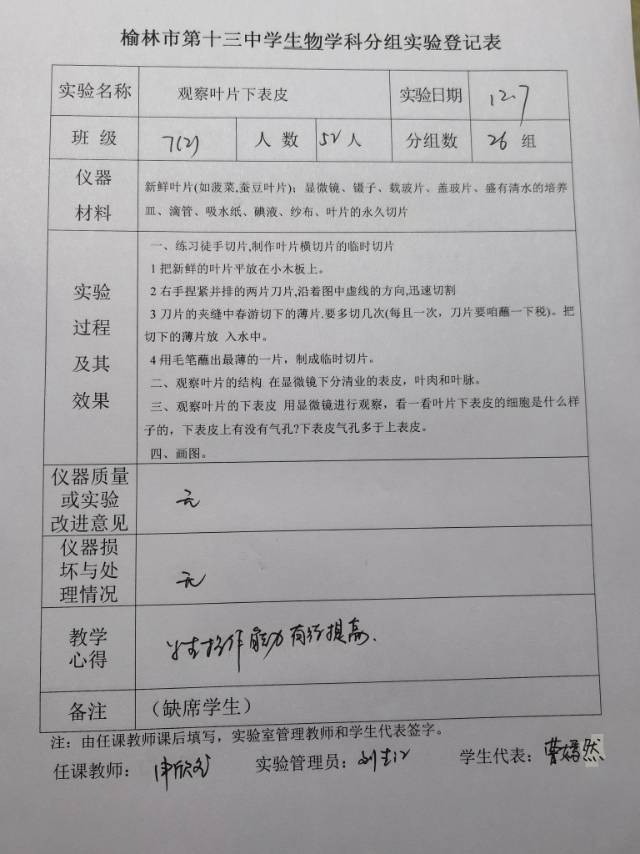 榆林市第十三中学生物学科分组实验登记表
实验名称 观察叶片下表皮 实验日期 12.7
班 级 7(2) 人 数 52 人 分组数 26 组
仪器材料
新鲜叶片(如菠菜,蚕豆叶片)；显微镜、镊子、载玻片、盖玻片、盛有清水的培养
皿、滴管、吸水纸、碘液、纱布、叶片的永久切片
实验过程及其效果
一、练习徒手切片,制作叶片横切片的临时切片
1 把新鲜的叶片平放在小木板上。
2 右手捏紧并排的两片刀片,沿着图中虚线的方向,迅速切割
3 刀片的夹缝中春游切下的薄片.要多切几次(每且一次，刀片要咱蘸一下税)。把
切下的薄片放 入水中。
4 用毛笔蘸出最薄的一片，制成临时切片。
二、观察叶片的结构 在显微镜下分清业的表皮，叶肉和叶脉。
三、观察叶片的下表皮 用显微镜进行观察，看一看叶片下表皮的细胞是什么样
子的，下表皮上有没有气孔?下表皮气孔多于上表皮。
四、画图。
仪器质量
或实验
改进意见
无
仪器损
坏与处
理情况
无
教学
心得
操作能力有待提高.
备注 （缺席学生）
注：由任课教师课后填写，实验室管理教师和学生代表签字。
任课教师： 实验管理员： 学生代表：曹嫣然